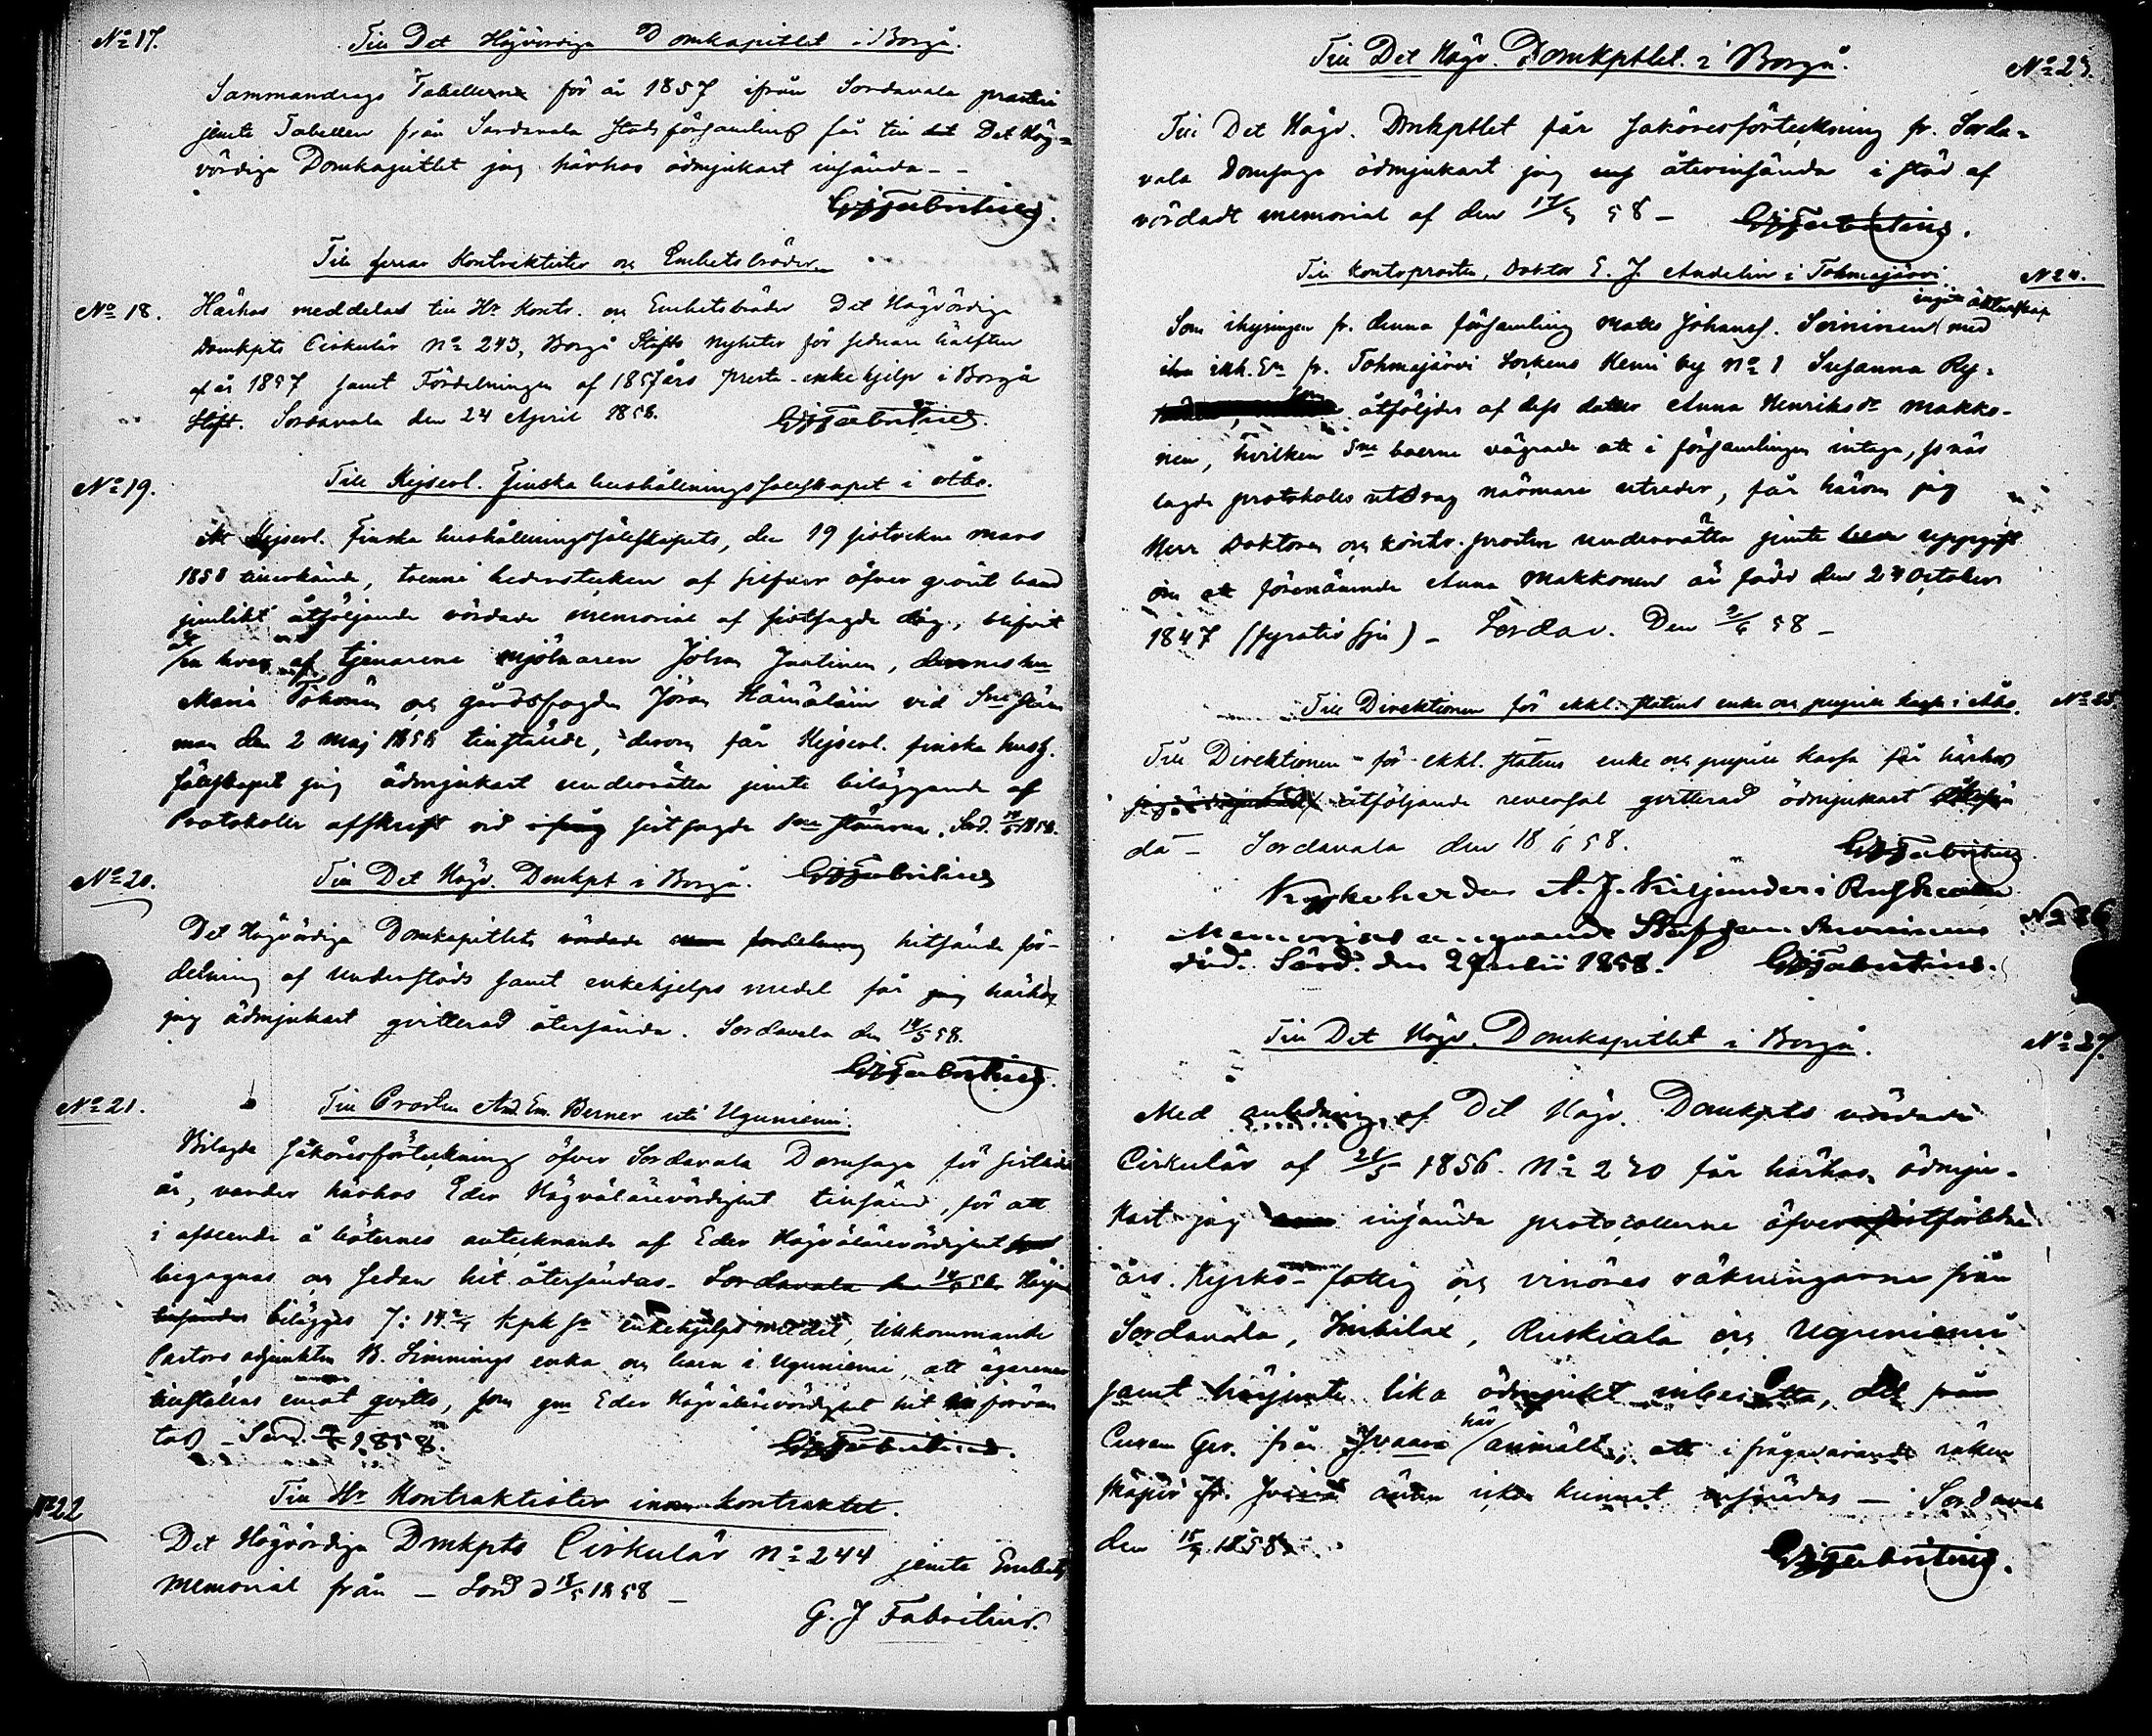 No 17.
Till Det Högvördiga Domkapitlet i Borgå.
Sammandrags Tabellerne för år 1857 ifrån Sordavala prosteri
jemte Tabellen från Sordavala stads församling får till Det Hög-
vördiga Domkapitlet jag härhos ödmjukast insända - -
GJFabritius.
Till herrar Kontraktister och Embetsbröder
No 18.
Härhos meddelas till Hr Kontr. och Embetsbröder Det Högvördiga
Domkpts Cirkulär No 243, Borgå Stifts nyheter för sednare hälften
af år 1857 samt Fördelningen af 1857 års Prest-enkehjelp i Borgå
Stift. Sordavala den 24 April 1858.
GJFabritius.
No 19.
Till Kejserl. Finska hushållningssällskapet i Åbo.
Kejserl. Finska hushållningssällskapets, den 19 sistvikne mars
1858 tillerkände, trenne hederstecken af silfver öfver grönt band
jemlikt åtföljande vördade memorial af sistsagde dag, blifvit
hvar af tjenarene mjölnaren Johan Jaatinen,
Maria och gårdsfogden Jöran Hämäläin vid
man den 2 Maj 1858 tillstälde, derom får Kejserl. finska hush.
sällskapet jag ödmjukast underrätta jemte biläggande af
Protokolls afskrift vid sistsagde Sne stämma. Sord. 14/5 1858.
No 20.
Till Det Högv. Domkpt i Borgå.
GJFabritius
Det Högvördiga Domkapitlets vördade hitsände för-
delning af understöds samt enkehjelps medel får jag härhos
jag ödmjukast qvitterad återsända. Sordavala den 14/5 58.
GJFabritius.
No 21.
Till Prosten And. Em. Berner uti Uguniemi.
Bilagde saköresförteckning öfver Sordavala Domsaga för sistledne
år, varder härhos Eder Högvälärevördighet tillsänd, för att
i afseende å böternes antecknande af Eder Högvälärevördighet
begagnas och sedan hit återsändas. Sordavala den 14/5 58
bilägges 7: 14 2/7 kpk Sr enkehjelps medel, tillkommande
Pastors adjunkten B. Limnings enka och barn i Uguniemi, att ägarenne
tillställas emot qvitto, som gm Eder Högvälärevördighet hit förvän
tas - Sord. 1858.
GJFabritius.
No 22
Till Hr Kontraktister inom kontraktet.
Det Högvördiga Dmkpts Cirkulär No 244 jemte Embets
memorial från — Sord d 18/5 1858 —
G. J Fabritius.
Till Det Högv. Domkptlet. i Borgå.
No 23.
Till Det Högv. Dmkptlet får saköresförteckning fr. Sorda-
vala Domsaga ödmjukast jag återinsända i stöd af
vördadt memorial af den 17/5 58 —
GJFabritius.
Till kontr.prosten, Doktor E. J. Andelin i Tohmajärvi.
No 24.
ingått äktenskap
Som ihysingen fr. denna församling Matts Johanss. Soininen med
fr. Tohmajärvi Sockens Kemi by No 1 Susanna
åtföljdes af dess dotter Anna Henriksdr Makko-
nen, hvilken Sne boerne vägrade att i församlingen intaga,
lagde protokolls utdrag närmare utreder, får härom jag
Herr Doktoren och kontr. prosten underrätta jemte uppgift
om förenämnde Anna Makkonen är född den 24 October
1847 (fyratio sju) - Sordav. Den 2/6 58 —
Till Direktionen för ekkl. statens enke och pupill kassa i Åbo.
No 25
Till Direktionen för ekkl. statens enke och pupill kassa får härhos
jag åtföljande reversal qvitterad ödmjukast
da — Sordavala den 18/6 58.
GJFabritius
Kyrkoherden A. J. Kiljander i Ruskeala
No 26
Memorial
Sord. den 2 Julii 1858.
GJFabritius.
Till Det Högv. Domkapitlet i Borgå.
No 27.
Med anledning af Det Högv. Domkpts vördade
Cirkulär af 21/5 1856. No 230 får härhos ödmju-
kast jag insända protocollerne öfver sistförledne
års. Kyrko- fattig och vinöres räkningarne från
Sordavala, Imbilax, Ruskiala och Uguniemi
samt härjemte lika ödmjukt
här
från Jvaara anmält, att i frågavarande räken
skaper ännu icke kunnat insändas — Sordaval
den 15/7 1858
GJFabritius.